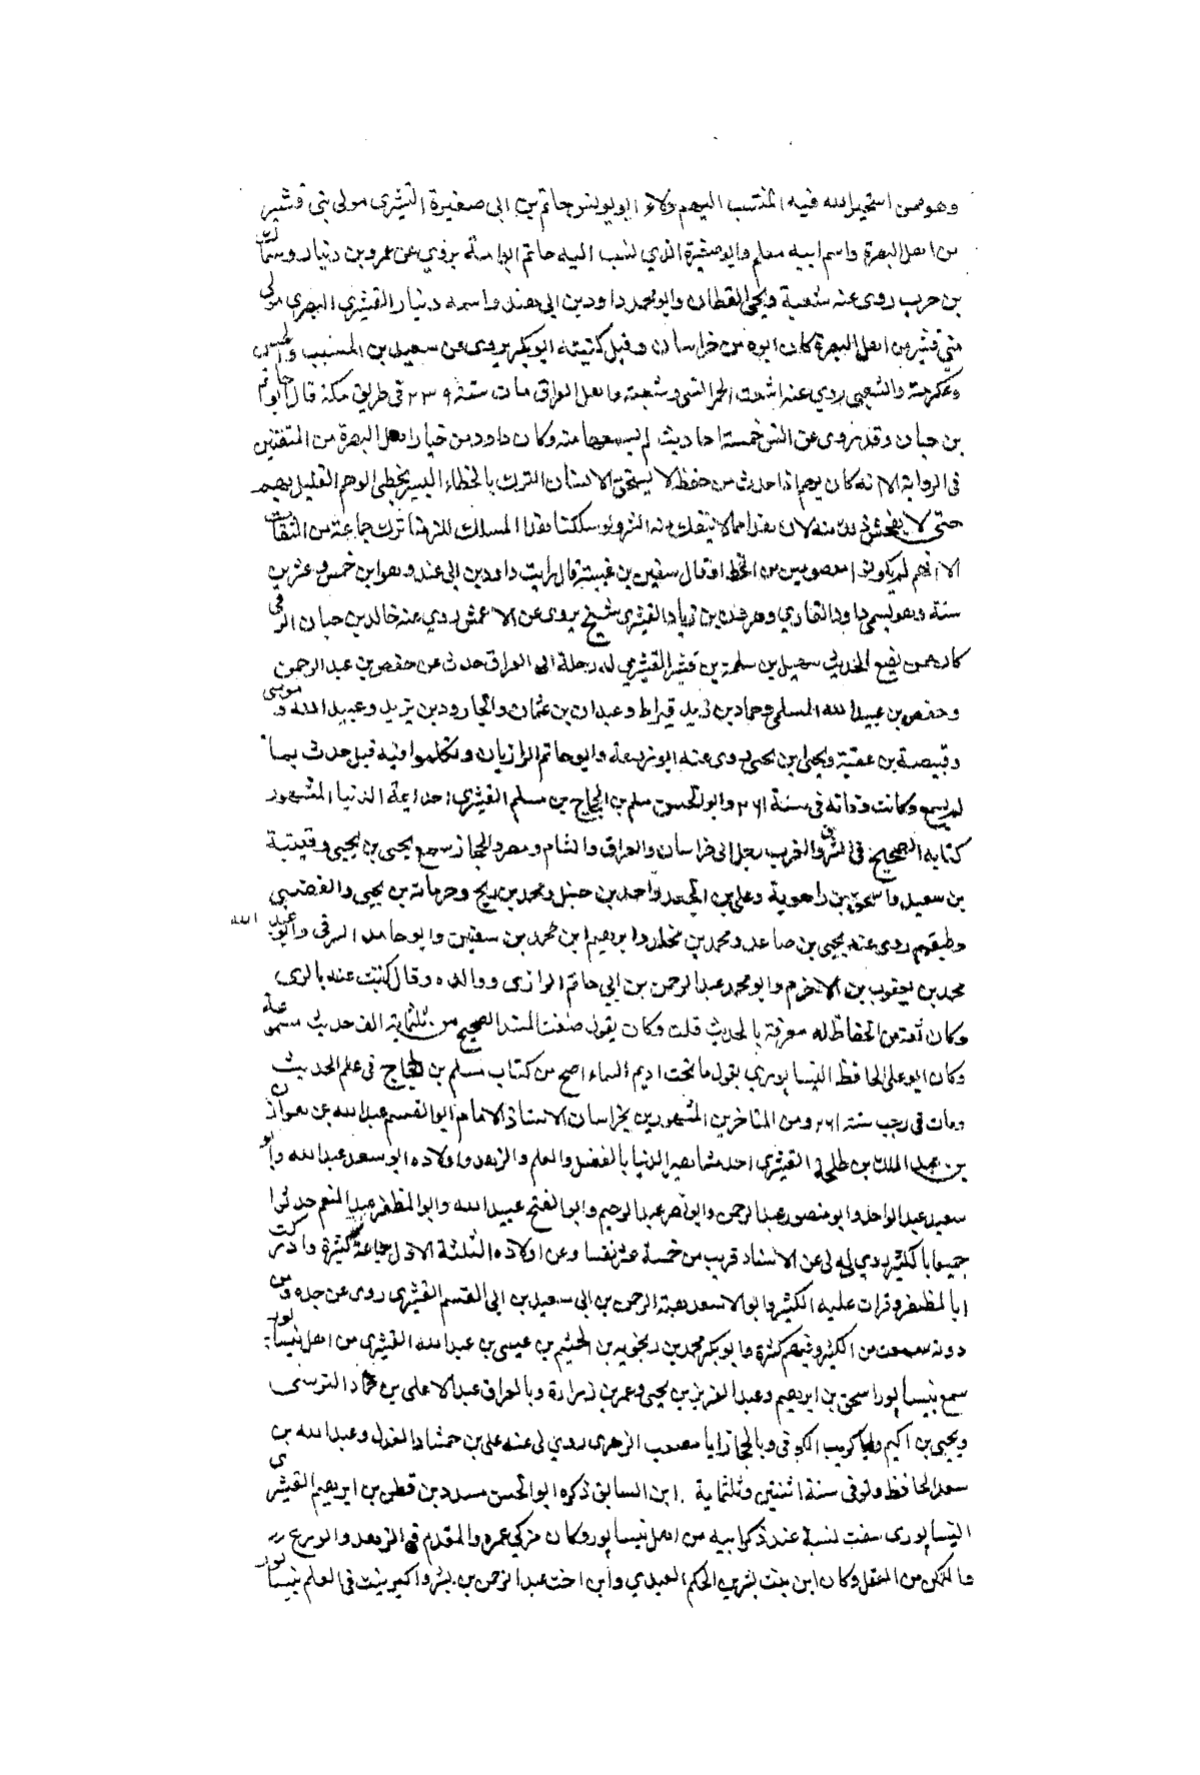 وهو ممن استخير الله فيه المنتسب اليهم ولاء ابو يونس حاتم بن ابى صغيرة القشيرى مولى بنى قشير
من اهل البصرة واسم ابيه مسلم وابو صغيرة الذي نسب اليه حاتم ابو امه يروي عن عمرو بن دينار وسماك
بن حرب روى عنه شعبة ويحيى القطان وابو محمد داود بن ابى هند واسمه دينار القشيرى البصرى مولى
بنى قشير من اهل البصرة كان ابوه من خراسان وقيل كنيته ابو بكر يروى عن سعيد بن المسيب والحسن
وعكرمة والشعبى روي عنه اشعث الحمرانى وشعبة واهل العراق مات سنة ١٣٩ فى طريق مكة قال ابو حاتم
بن حبان وقد روى عن انس خمسة احاديث لم يسمعها منه وكان داود من خيار اهل البصرة من المتقنين
فى الرواية الا انه كان يهم اذا حدث من حفظه لا يستحق الانسان الترك بالخطاء اليسير يخطى الوهم القليل يهم
حتى لا يفحش ذلك منه لان هذا مما لا ينفك منه البشر ولو سلكنا هذا المسلك للزمنا ترك جماعة من الثقات
الا انهم لم يكونوا معصومين من الخطا وقال سفين بن عيينة قال رايت داود بن ابى هند وهو ابن خمس وعشرين
سنة وهو يسمى داود القارى وهرفان بن زياد القشيرى شيخ يروى عن الاعمش روي عنه خالد بن حبان الرقى
كان ممن يضع الحديث سهيل بن سلمة بن قشير القشيرى له رحلة الى العراق حدث عن حفص بن عبد الرحمن
وحفص بن عبد الله السلمى وحماد بن قيراط وعبدان بن عثمان والجارود بن يزيد وعبيد الله بن موسى
وقبيصة بن عقبة ويحيى بن يحيى روى عنه ابو زرعة وابو حاتم الرازيان وتكلموا فيه قيل حدث بما
لم يسمع وكانت وفاته فى سنة ٢٦١ وابو الحسين مسلم بن الحجاج بن مسلم القشيرى احد ايمة الدنيا المشهور
كتابه الصحيح فى الشرق والغرب رحل الى خراسان والعراق والشام ومصر والحجاز سمع يحيى بن يحيى وقتيبة
بن سعيد واسحق بن راهوية وعلى بن الجعد واحمد بن حنبل ومحمد بن رمح وحرملة بن يحيى والقعنبي
وطبقتهم روى عنه يحيى بن صاعد ومحمد بن مخلد وابرهيم ابن محمد بن سفين وابو حامد الشرقى وابو عبد الله
محمد بن يعقوب بن الاخرم وابو محمد عبد الرحمن بن ابى حاتم الرازى ووالده وقال كتبت عنه بالرى
وكان ثقة من الحفاظ له معرفة بالحديث قلت وكان يقول صنفت المسند الصحيح من ثلثماية الف حديث مسموعة
وكان ابو على الحافظ النيسابورى يقول ما تحت اديم السماء اصح من كتاب مسلم بن الحجاج فى علم الحديث
ومات فى رجب سنة ٢٦١ ومن المتاخرين المشهورين بخراسان الاستاذ الامام ابو القسم عبد الله بن هوازن
بن عبد الملك بن طلحة القشيرى احد مشاهير الدنيا بالفضل والعلم والزهد واولاده ابو سعد عبد الله وابو
سعيد عبد الواحد وابو منصور عبد الرحمن وابو نصر عبد الرحيم وابو الفتح عبيد الله وابو المظفر عبد المنعم حدثوا
جميعا بالكثير روي لى عن الاستاذ قريب من خمسة عشر نفسا وعن اولاده الثلثة الاول جماعة كثيرة وادركت
ابا المظفر وقرات عليه الكثير وابو الاسعد هبة الرحمن بن ابى سعيد بن ابى القسم القشيرى روى عن جده ومن
دونه سمعت من الكثير وفيهم كثرة وابو بكر محمد بن زنجويه بن الهيثم بن عيسى بن عبد الله القشيرى من اهل نيسابور
سمع بنيسابور اسحق بن ابرهيم وعبد العزيز بن يحيى وعمر بن زرارة وبالعراق عبد الاعلى بن حماد النرسى
ويحيى بن اكثم وابا كريب الكوفى وبالحجاز ابا مصعب الزهرى روي لى عنه على بن حمشاد العدل وعبد الله بن
سعد الحافظ وتوفى سنة اثنتين وثلثماية . ابن السابق ذكره ابو الحسن مسدد بن قطن بن ابرهيم القشيرى
النيسابورى سقت نسبة عند ذكر ابيه من اهل نيسابور وكان مزكي عصره والمقدم فى الزهد والورع
والتمكن من العقل وكان ابن بنت بشر بن الحكم العبدي وابن اخت عبد الرحمن بن بشر واكبر بيت فى العلم بنيسابور